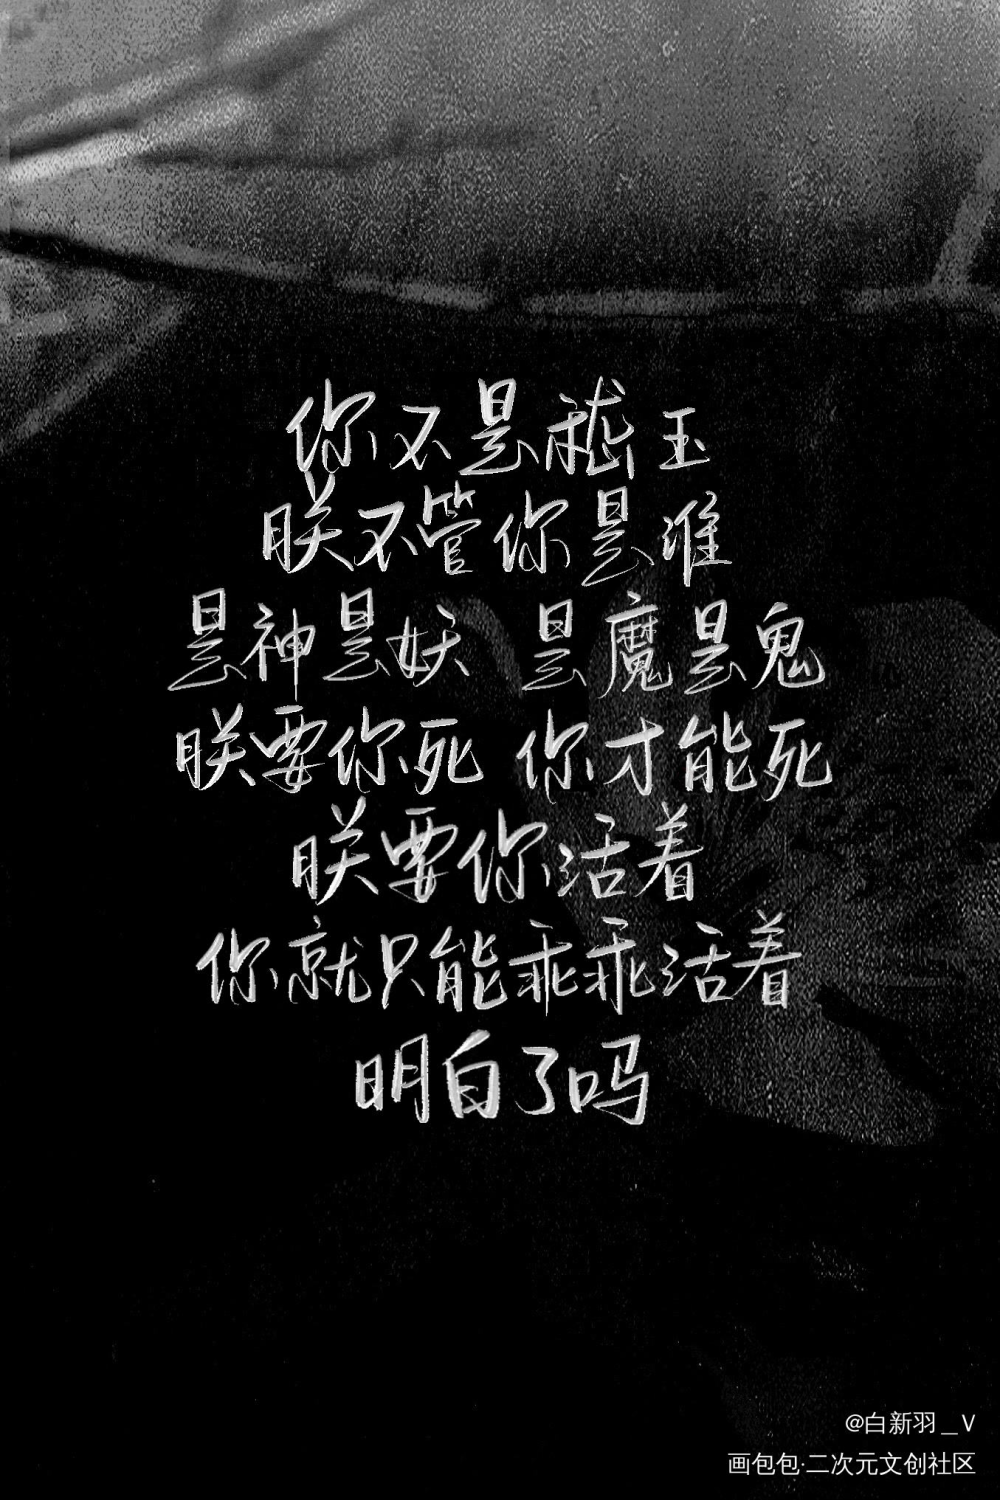 你不是嵇玉
朕不管你是谁
是神是妖 是魔是鬼
朕要你死 你才能死
朕要你活着
你就只能乖乖活着
明白了吗
@白新羽__V
画包包·二次元文创社区